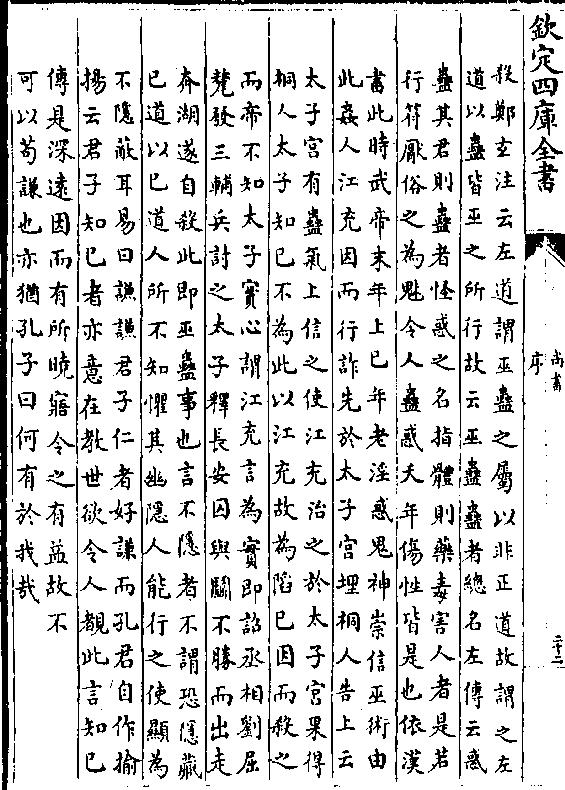 欽定四庫全書
尚書
序
二十二
殺鄭玄注云左道謂巫蠱之屬以非正道故謂之左
道以蠱皆巫之所行故云巫蠱蠱者總名左傳云惑
蠱其君則蠱者怪惑之名指體則藥毒害人者是若
行符厭俗之為魅令人蠱惑夭年傷性皆是也依漢
書此時武帝末年上已年老淫惑鬼神崇信巫術由
此姦人江充因而行詐先於太子宮埋桐人告上云
太子宮有蠱氣上信之使江充治之於太子宮果得
桐人太子知已不為此以江充故為陷已因而殺之
而帝不知太子實心謂江充言為實即詔丞相劉屈
氂發三輔兵討之太子釋長安囚與鬬不勝而出走
奔湖遂自殺此即巫蠱事也言不隱者不謂恐隱藏
已道以已道人所不知懼其幽隱人能行之使顯為
不隱蔽耳易曰謙謙君子仁者好謙而孔君自作揄
揚云君子知已者亦意在教世欲令人覩此言知已
傳是深遠因而有所曉寤令之有益故不
可以苟謙也亦猶孔子曰何有於我哉